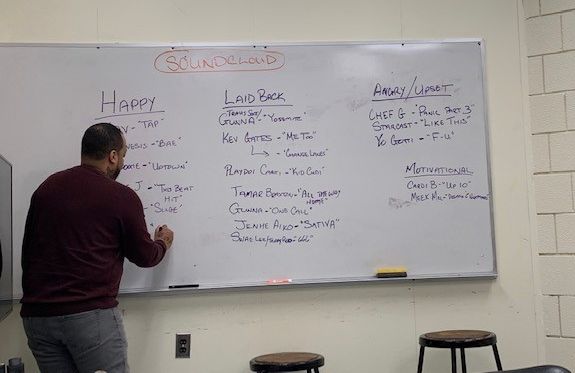 SOUNDCLOUD
HAPPY
"TAP"
"BAE"
"UPTOWN"
J - "THIS BEAT
HIT"
"SLIDE"
LAID BACK
TRAVIS SCOTT/
GUNNA - "YOSEMITE"
KEV GATES - "ME TOO"
"CHANGE LANES"
PLAYBOI CARTI - "KID CUDI"
TAMAR BRAXTON - "ALL THE WAY
HOME"
GUNNA - "ONE CALL"
JENHE AIKO - "SATIVA"
SWAE LEE/
ANGRY/UPSET
CHEF G - "PANIC PART 3"
STARCAST - "LIKE THIS"
YO GOTTI - "F-U"
MOTIVATIONAL
CARDI B - "UP 10"
MEEK MILL - DREAMS &